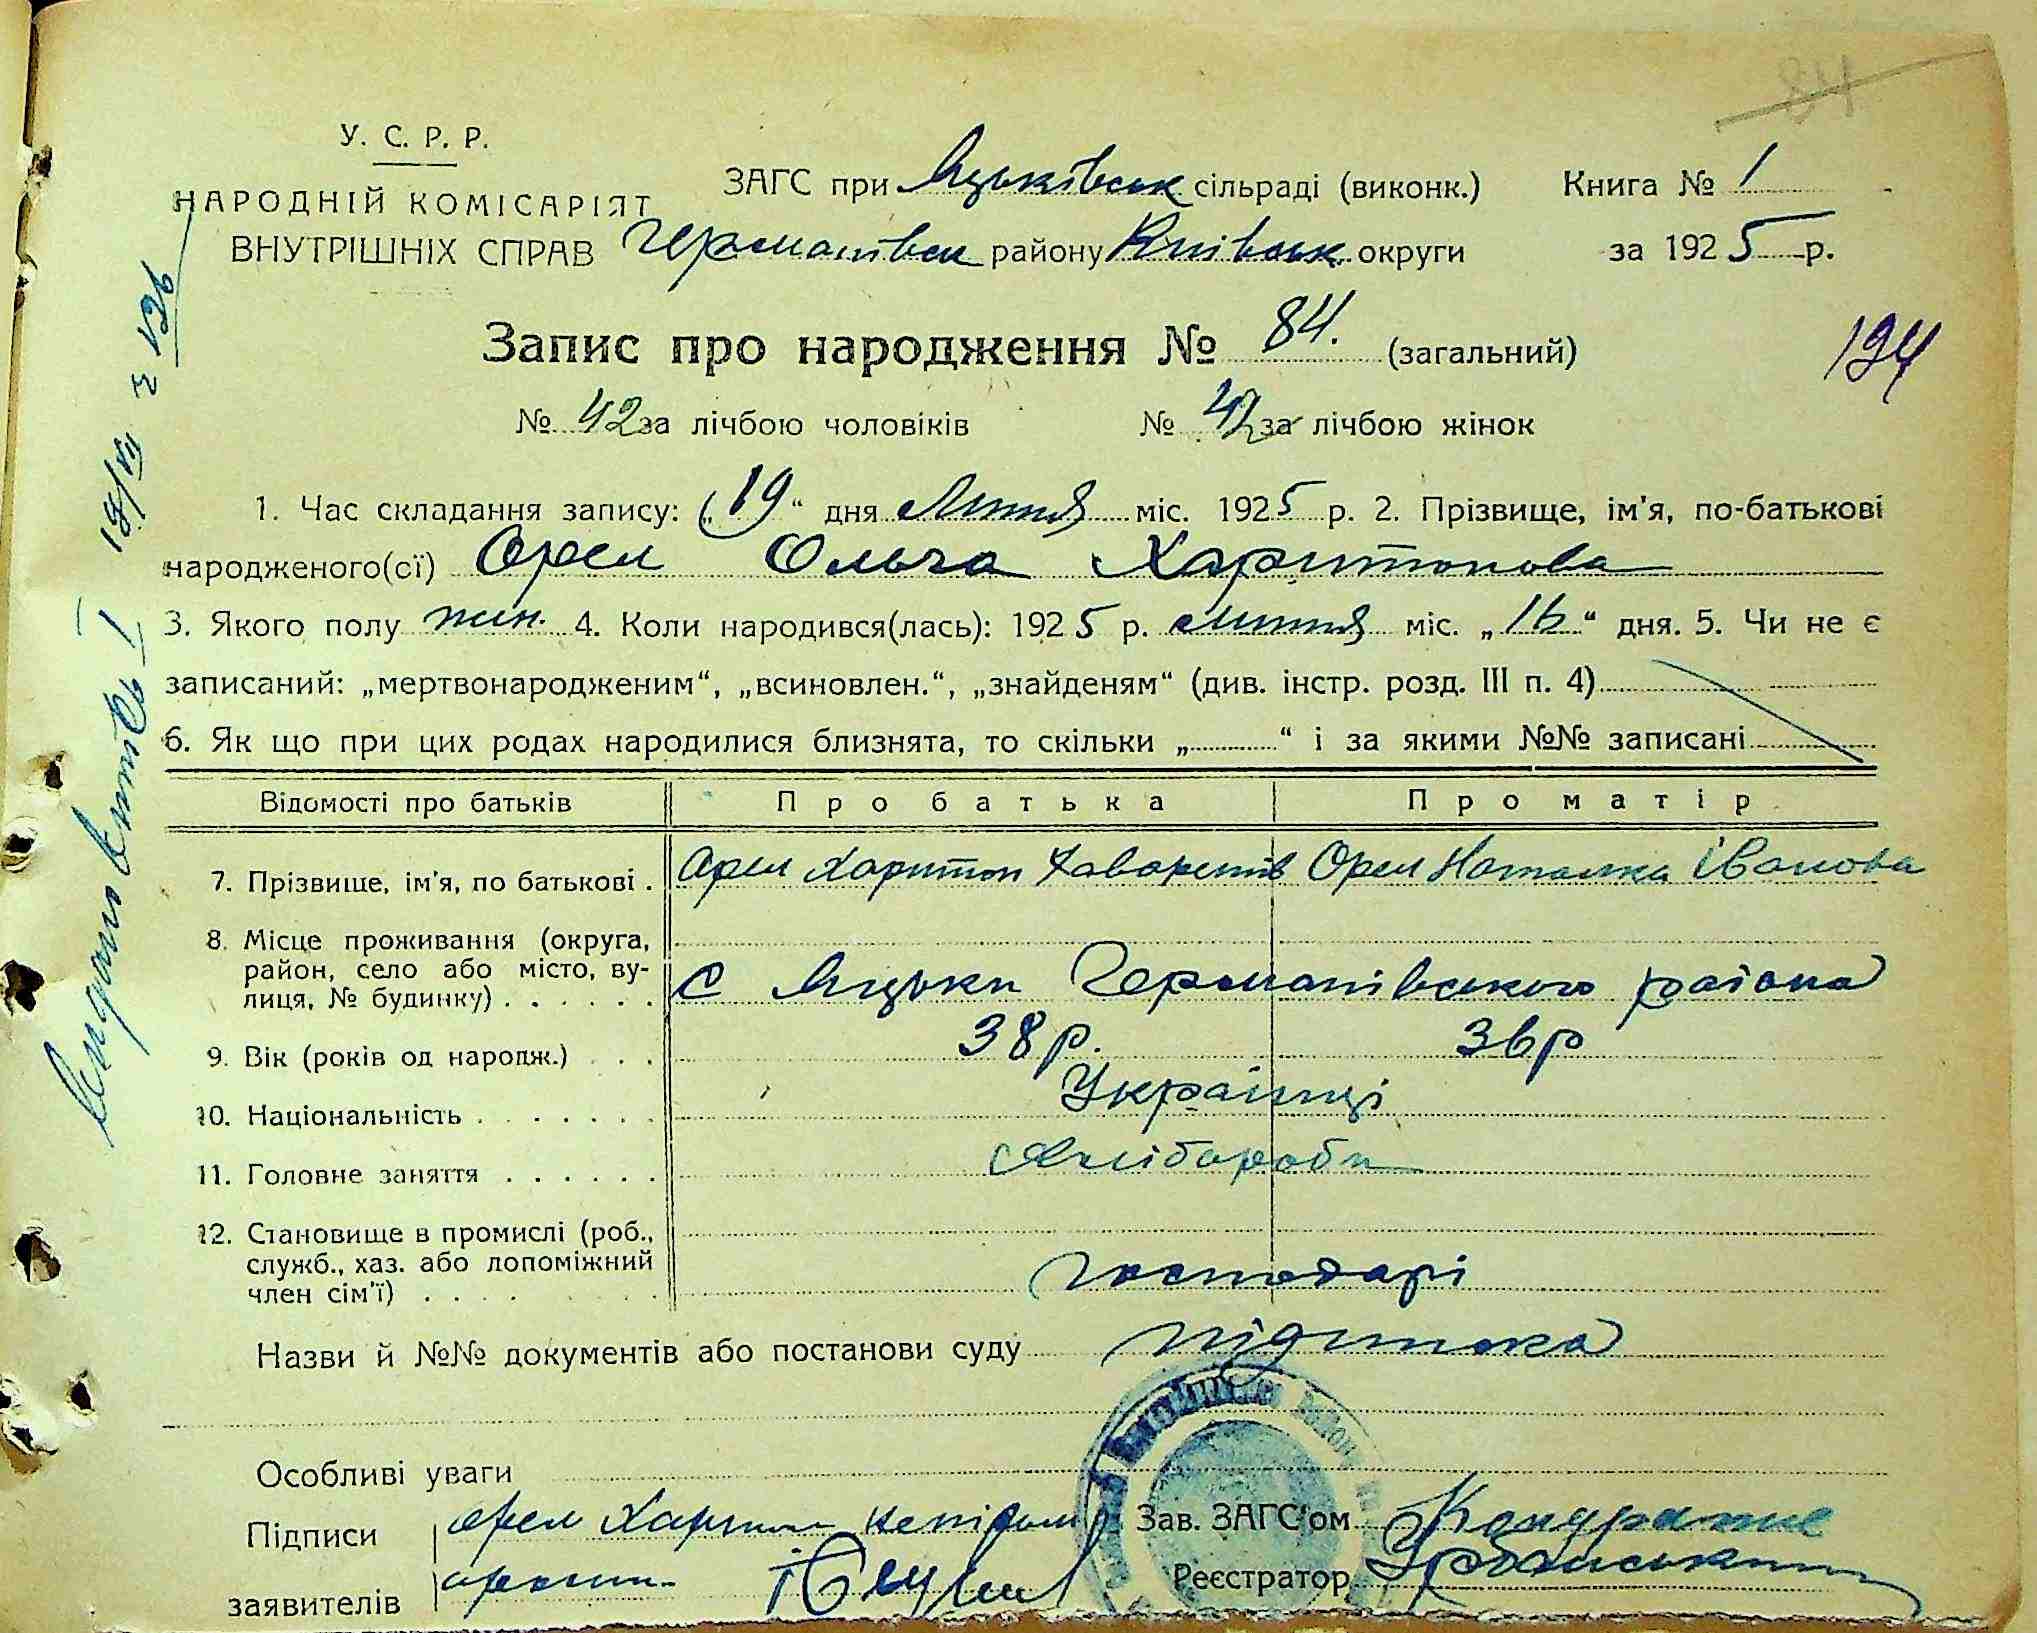 84
У. С. Р. Р.
НАРОДНІЙ КОМІСАРІЯТ
ВНУТРІШНІХ СПРАВ
ЗАГС при Яцьківськ сільраді (виконк.) Книга № 1
Германівськ району Київськ округи за 1925 р.
Запис про народження № 84. (загальний)
194
№ 42 за лічбою чоловіків № 42 за лічбою жінок
1. Час складання запису: „19“ дня Липня міс. 1925 р. 2. Прізвище, ім'я, по-батькові
народженого(сї) Орел Ольга Харитонова
3. Якого полу жин. 4. Коли народився(лась): 1925 р. липня міс. „16“ дня. 5. Чи не є
записаний: „мертвонародженим“, „всиновлен.“, „знайденям“ (див. інстр. розд. III п. 4)
6. Як що при цих родах народилися близнята, то скільки „ “ і за якими №№ записані
Відомості про батьків Про батька Про матір
7. Прізвище, ім'я, по батькові . Орел Харитон Орел Наталка Іванова
8. Місце проживання (округа,
район, село або місто, ву-
лиця, № будинку) . . . . . . с Яцьки Германівського района
9. Вік (років од народж.) . . . 38 р. 36 р
10. Національність . . . . . . . Українці
11. Головне заняття . . . . . . Хлібороби
12. Становище в промислі (роб.,
служб., хаз. або допоміжний
член сім'ї) . . . . . . . . господарі
Назви й №№ документів або постанови суду
Особливі уваги
Підписи Орел Харитон Зав. ЗАГС'ом
заявителів Реєстратор